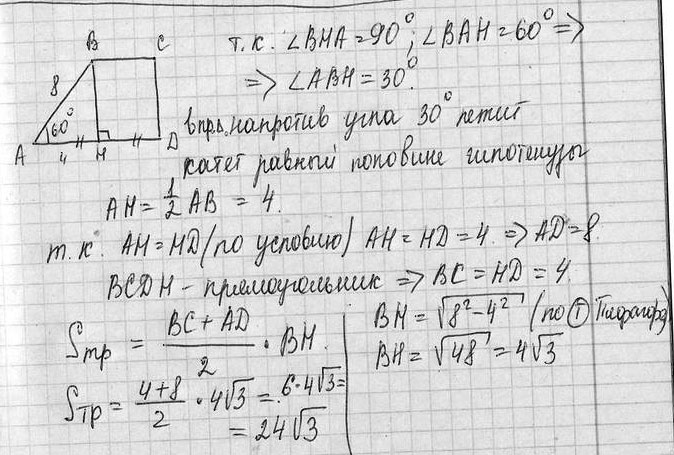 B C
8
60°
A 4 H D
т.к. ∠BHA = 90°; ∠BAH = 60° =>
=> ∠ABH = 30°.
в пр. напротив угла 30° лежит
катет равный половине гипотенузы
AH = 1/2 AB = 4.
т.к. AH = HD (по условию) AH = HD = 4 => AD = 8
BCDH - прямоугольник => BC = HD = 4
Sтр = (BC + AD)/2 · BH.
Sтр = (4+8)/2 · 4√3 = 6·4√3 =
= 24√3
BH = √(8² - 4²) (по Т Пифагора)
BH = √48 = 4√3